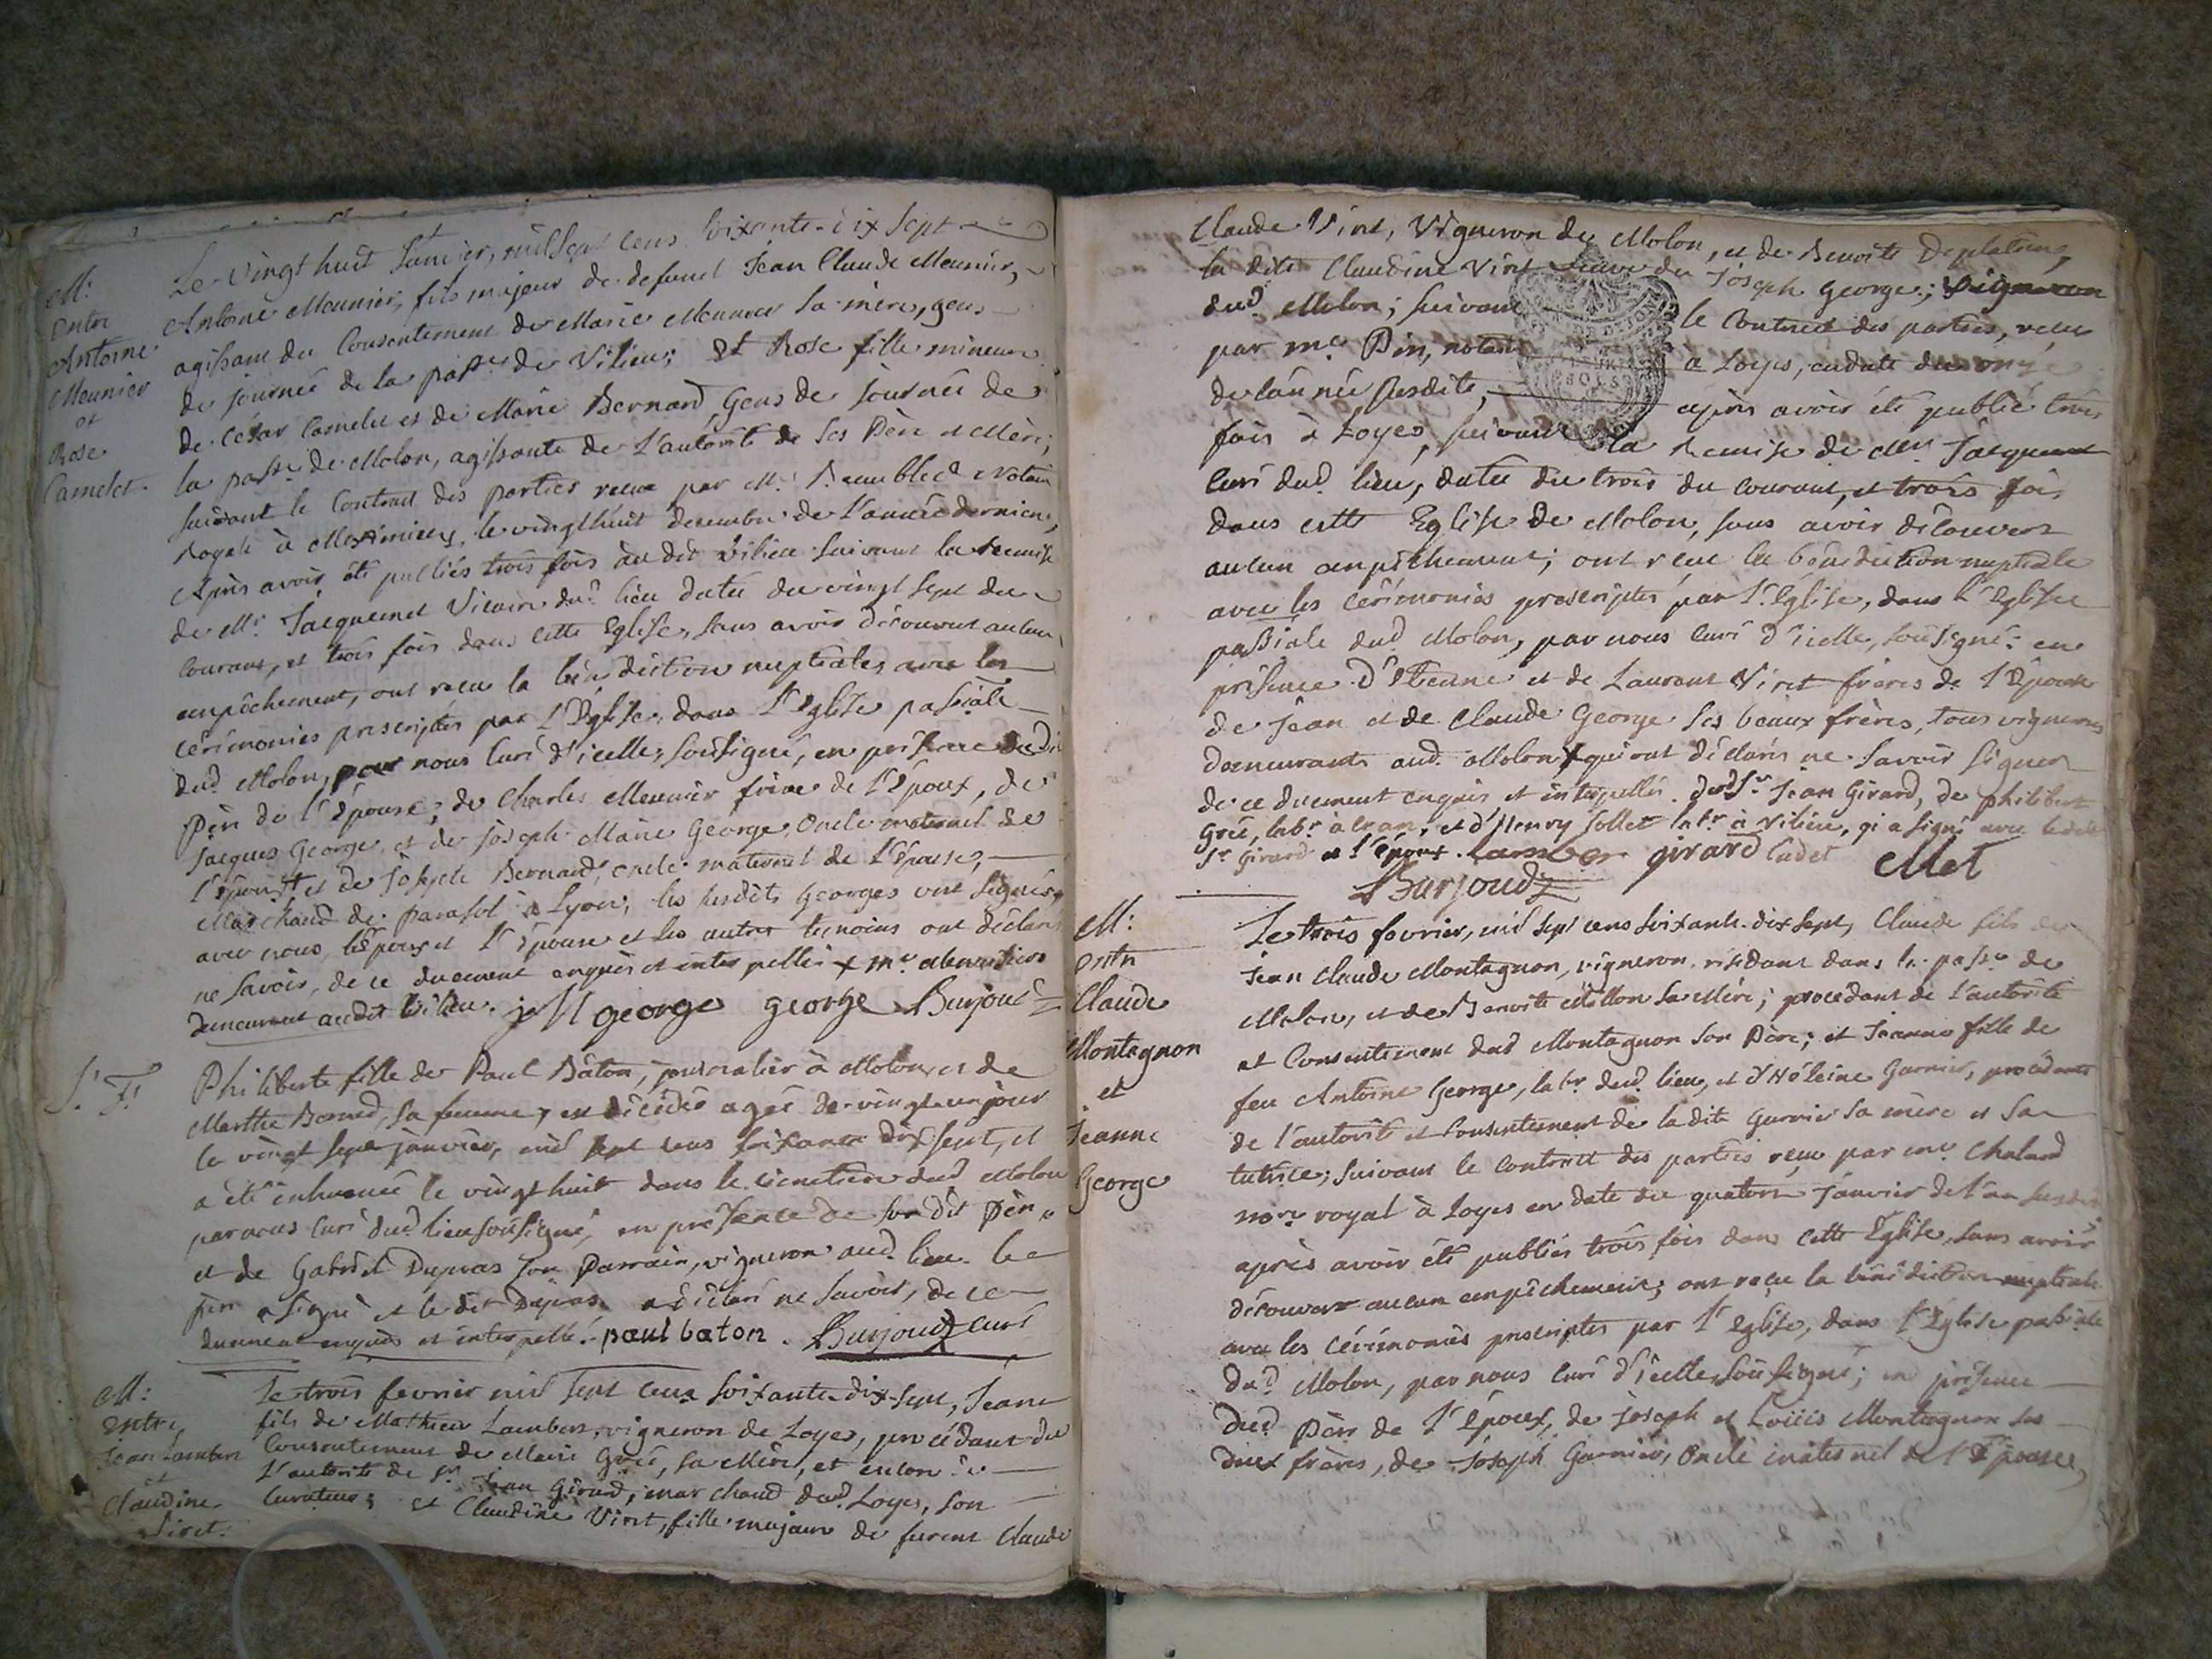 M.
entre
Antoine
Meunier
et
Rose
Camelet.
Le vingt huit Janvier, mil sept cens soixante-dix sept
Antoine Meunier, fils majeur de defunt Jean Claude Meunier,
agissant du consentement de Marie Meunier sa mère, gens
de journée de la passe de Vilieu; et Rose fille mineure
de César Camelet et de Marie Bernard, Gens de journée de
la passe de Molon, agissante de l'autorité de ses Père et Mère;
suivant le contract des parties receu par Me. Notaire
Royale à Meximieux, le vingthuit decembre de l'année derniere,
Après avoir été publiés trois fois au dit Vilieu suivant la remise
de Mr. Jacquemet Vicaire dud. lieu datée du vingt sept du
courant, et trois fois dans cette Eglise, sans avoir découvert aucun
empêchement, ont receu la bénédiction nuptiales, avec les
cérémonies prescriptes par l'Eglise, dans l'Eglise passiale
dud. Molon, par nous curé d'icelle, soussigné, en présence dudit
Père de l'Epouse; de Charles Meunier frère de l'Epoux, de
Jacques George, et de Joseph Marie George, Oncle maternel de
l'époux, et de Joseph Bernard, oncle maternel de l'Epouse,
Marchand de parasol à Lyon; les susdits Georges ont signés
avec nous, l'Epoux et l'Epouse et les autres temoins ont déclaré
ne savoir, de ce duement enquis et interpellés x
demeurant audit Vilieu. j M george george Burjoud
S. F.
Philiberte fille de Paul Bâton, journalier à Molon, et de
Marthe Bernard, sa femme, est décédée agée de vingt-un jour
le vingt sept janvier, mil sept cens soixante dix sept, et
a été inhumée le vingt huit dans le cimetière dud Molon
par nous curé dud. lieu soussigné, en présence de son dit Père
et de Gabriel Dupras son Parrain, vigneron aud. lieu. le
père a signé et le dit Dupras a déclaré ne savoir, de ce
duement enquis et interpellé. paul baton. Burjoud curé
M:
entre
Jean Lambert
et
Claudine
Viret.
Le trois fevrier mil sept cens soixante-dix-sept, Jean
fils de Mathieu Lambert, vigneron de Loyes, procédant du
consentement de Marie Grée, sa Mère, et encor de
l'autorité de Sr. Jean Girard, marchand dud. Loyes, son
curateur; et Claudine Viret, fille majeure de furent Claude
Claude Viret, Vigneron de Molon, et de Benoite Deplatine,
la dite Claudine Viret veuve de Joseph George; vigneron
dud. Molon; suivant le Contract des parties, receu
par me. Pin, notaire a Loyes, en date du onze
de l'année susdite, après avoir été publié trois
fois à Loyes, suivant la Remise de Mr. Jacquemet
Curé dud. lieu, datée du trois du courant, et trois fois
dans cette Eglise de Molon, sans avoir découvert
aucun empêchement; ont reçu la bénédiction nuptiale
avec les cérémonies prescriptes par l'Eglise, dans l'Eglise
passiale dud. Molon, par nous curé d'icelle, soussigné: en
présence d'Etienne et de Laurent Viret frères de l'Epouse
de Jean et de Claude George ses beaux frères, tous vignerons
demeurants aud. Molon x qui ont déclarés ne savoir signer
de ce duement enquis et interpellés. dud Sr. Jean Girard, de philibert
Grée, labr. à Cran, et d'Henry Sollet labr. à Vilieu, qi a signé avec ledit
Sr. Girard et l'Epoux. Lamber girard Cadet
Burjoud
M:
entre
Claude
Montagnon
et
Jeanne
George
Le trois fevrier, mil sept cens soixante-dix sept, Claude fils de
Jean Claude Montagnon, vigneron residant dans la passe de
Molon, et de Benoite Millon sa Mère; procedant de l'autorité
et Consentement dud Montagnon son Père; et Jeanne fille de
feu Antoine George, labr. dud. lieu, et d'Hélaine Garnier, procédante
de l'autorité et consentement de la dite Garnier sa mère et sa
tutrice; suivant le contract des parties reçu par me. Chalard
nore. royal à Loyes en date du quatorze janvier de l'an susdit
après avoir été publiés trois fois dans cette Eglise, sans avoir
découvert aucun empêchement; ont reçu la bénédiction nuptiale
avec les cérémonies prescriptes par l'Eglise, dans l'Eglise passiale
dud. Molon, par nous curé d'icelle soussigné; en présence
dud. Père de l'Epoux, de Joseph et Loüis Montagnon ses
deux frères, de Joseph Garnier, Oncle maternel de l'Epouse,